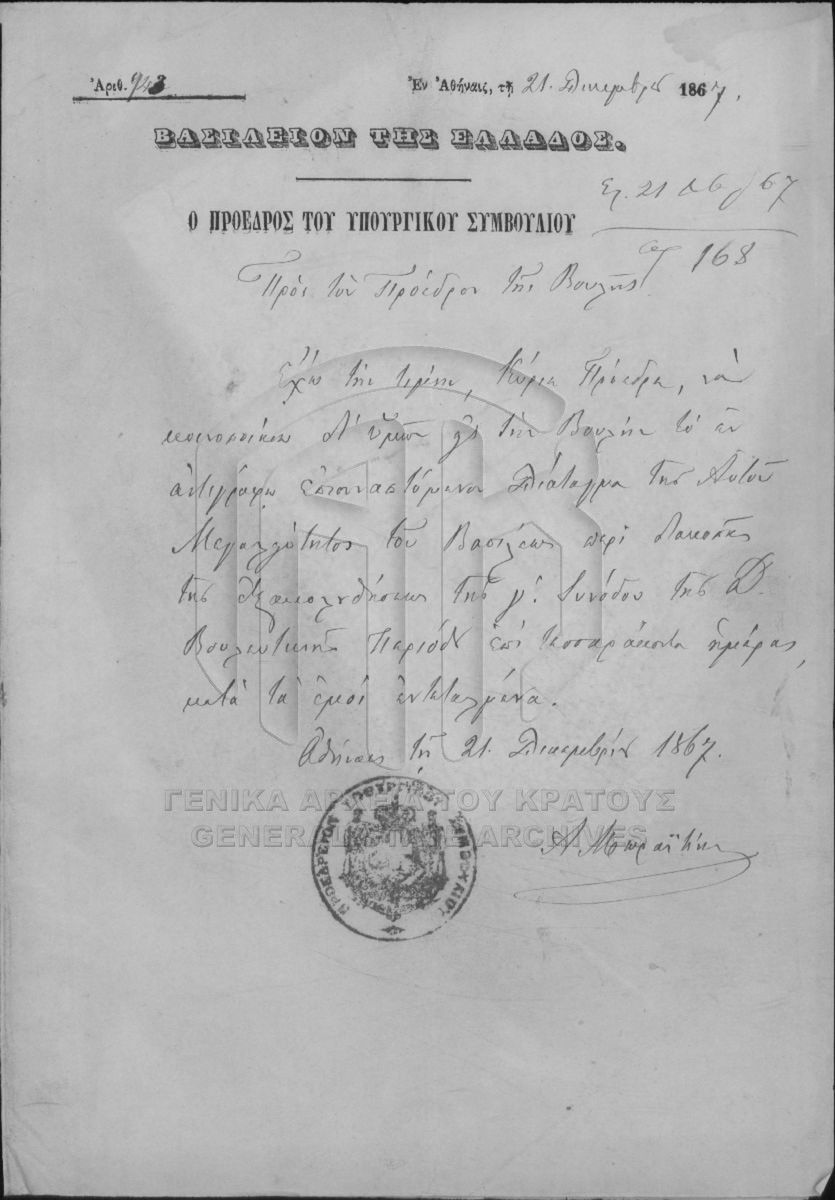 Ἀριθ. 943
Ἐν Ἀθήναις, τῇ 21. Δεκεμβρίου 1867.
ΒΑΣΙΛΕΙΟΝ ΤΗΣ ΕΛΛΑΔΟΣ.
21 67
Ο ΠΡΟΕΔΡΟΣ ΤΟΥ ΥΠΟΥΡΓΙΚΟΥ ΣΥΜΒΟΥΛΙΟΥ
168
Πρὸς τὸν Πρόεδρον τῆς Βουλῆς
Ἔχω τὴν τιμὴν, Κύριε Πρόεδρε, νὰ
κοινοποιήσω δι' ὑμῶν εἰς τὴν Βουλὴν τὸ ἐν
ἀντιγράφῳ ἐπισυναπτόμενον Διάταγμα τῆς Αὐτοῦ
Μεγαλειότητος τοῦ Βασιλέως περὶ διακοπῆς
τῆς ἐξακολουθήσεως τῆς γ'. Συνόδου τῆς Β.
Βουλευτικῆς Περιόδου ἐπὶ τεσσαράκοντα ἡμέρας,
κατὰ τὰ ἐμοὶ ἐντεταλμένα.
Ἀθήνησι τῇ 21. Δεκεμβρίου 1867.
ΓΕΝΙΚΑ ΑΡΧΕΙΑ ΤΟΥ ΚΡΑΤΟΥΣ
GENERAL STATE ARCHIVES
ΠΡΟΕΔΡΕΙΟΝ ΥΠΟΥΡΓΙΚΟΥ ΣΥΜΒΟΥΛΙΟΥ
Α Μωραϊτίνης